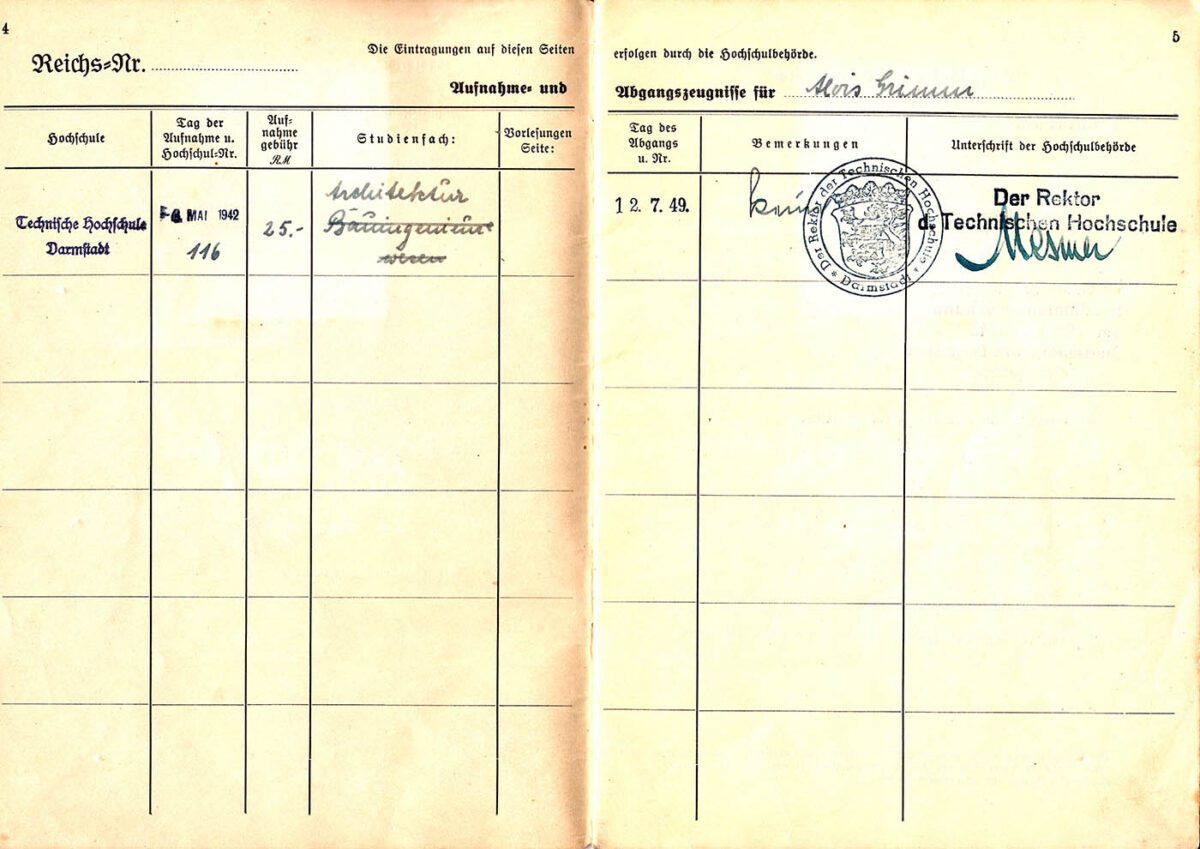 4
Die Eintragungen auf diesen Seiten
Reichs-Nr.
Aufnahme- und
Hochschule
Tag der
Aufnahme u.
Hochschul-Nr.
Auf-
nahme
gebühr
RM
Studienfach:
Vorlesungen
Seite:
Technische Hochschule
Darmstadt
MAI 1942
116
25.-
Architektur
Bauingenieur
wesen
5
erfolgen durch die Hochschulbehörde.
Abgangszeugnisse für Alois Grimm
Tag des
Abgangs
u. Nr.
Bemerkungen
Unterschrift der Hochschulbehörde
12. 7. 49.
keine
Der Rektor der Technischen Hochschule
Darmstadt
Der Rektor
d. Technischen Hochschule
Mesmer